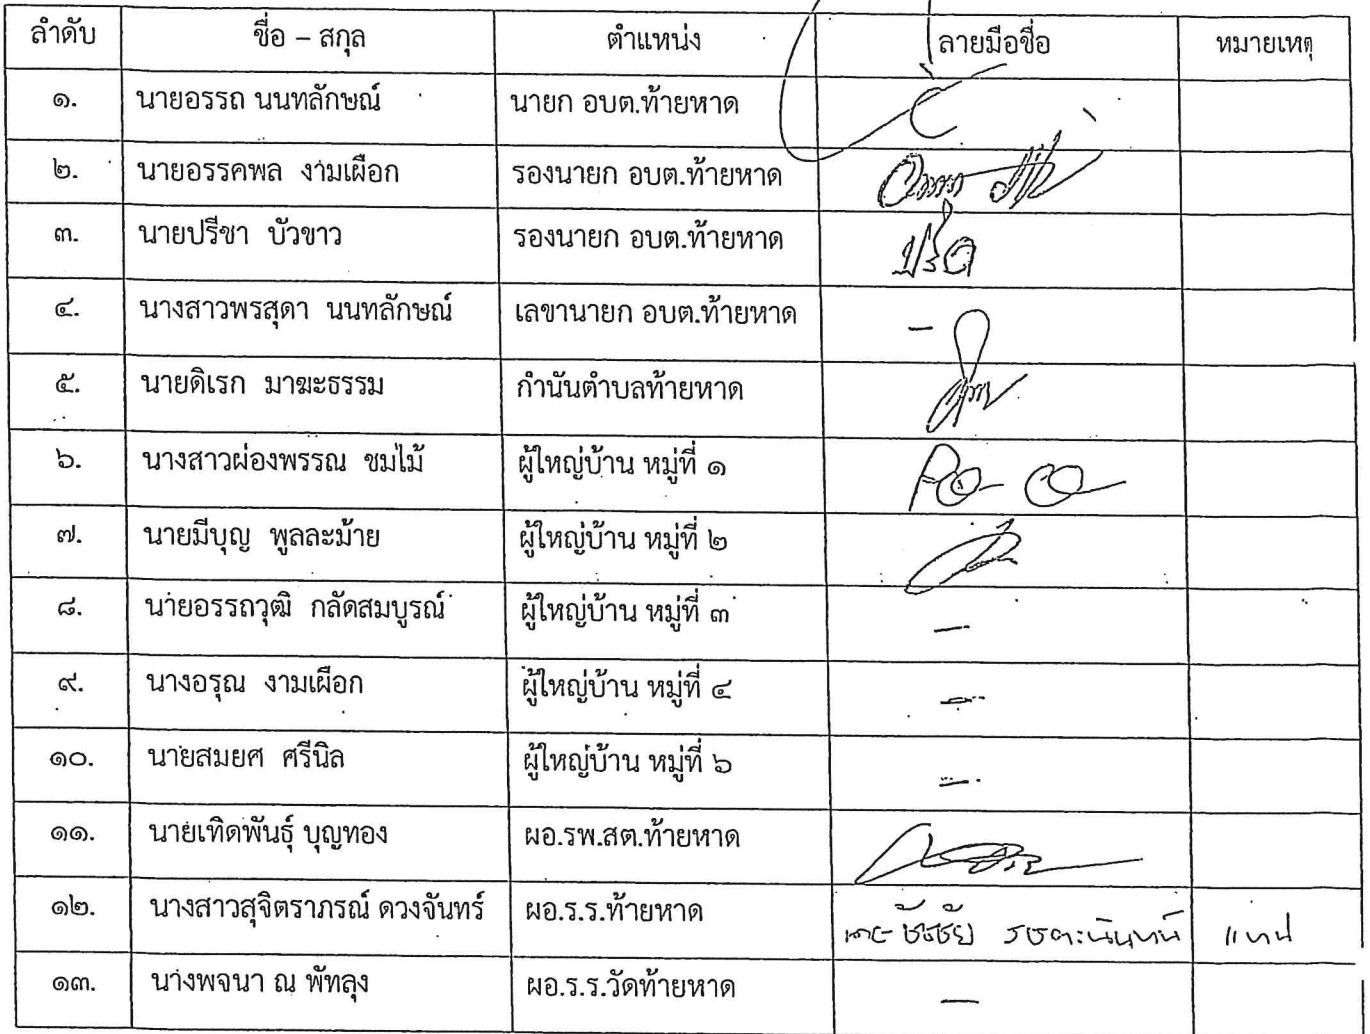 ลำดับ ชื่อ – สกุล ตำแหน่ง ลายมือชื่อ หมายเหตุ
๑. นายอรรถ นนทลักษณ์ นายก อบต.ท้ายหาด
๒. นายอรรคพล งามเผือก รองนายก อบต.ท้ายหาด
๓. นายปรีชา บัวขาว รองนายก อบต.ท้ายหาด
๔. นางสาวพรสุดา นนทลักษณ์ เลขานายก อบต.ท้ายหาด –
๕. นายดิเรก มาฆะธรรม กำนันตำบลท้ายหาด
๖. นางสาวผ่องพรรณ ชมไม้ ผู้ใหญ่บ้าน หมู่ที่ ๑
๗. นายมีบุญ พูลละม้าย ผู้ใหญ่บ้าน หมู่ที่ ๒
๘. นายอรรถวุฒิ กลัดสมบูรณ์ ผู้ใหญ่บ้าน หมู่ที่ ๓ –
๙. นางอรุณ งามเผือก ผู้ใหญ่บ้าน หมู่ที่ ๔ –
๑๐. นายสมยศ ศรีนิล ผู้ใหญ่บ้าน หมู่ที่ ๖ –
๑๑. นายเทิดพันธุ์ บุญทอง ผอ.รพ.สต.ท้ายหาด
๑๒. นางสาวสุจิตราภรณ์ ดวงจันทร์ ผอ.ร.ร.ท้ายหาด แทน
๑๓. นางพจนา ณ พัทลุง ผอ.ร.ร.วัดท้ายหาด –